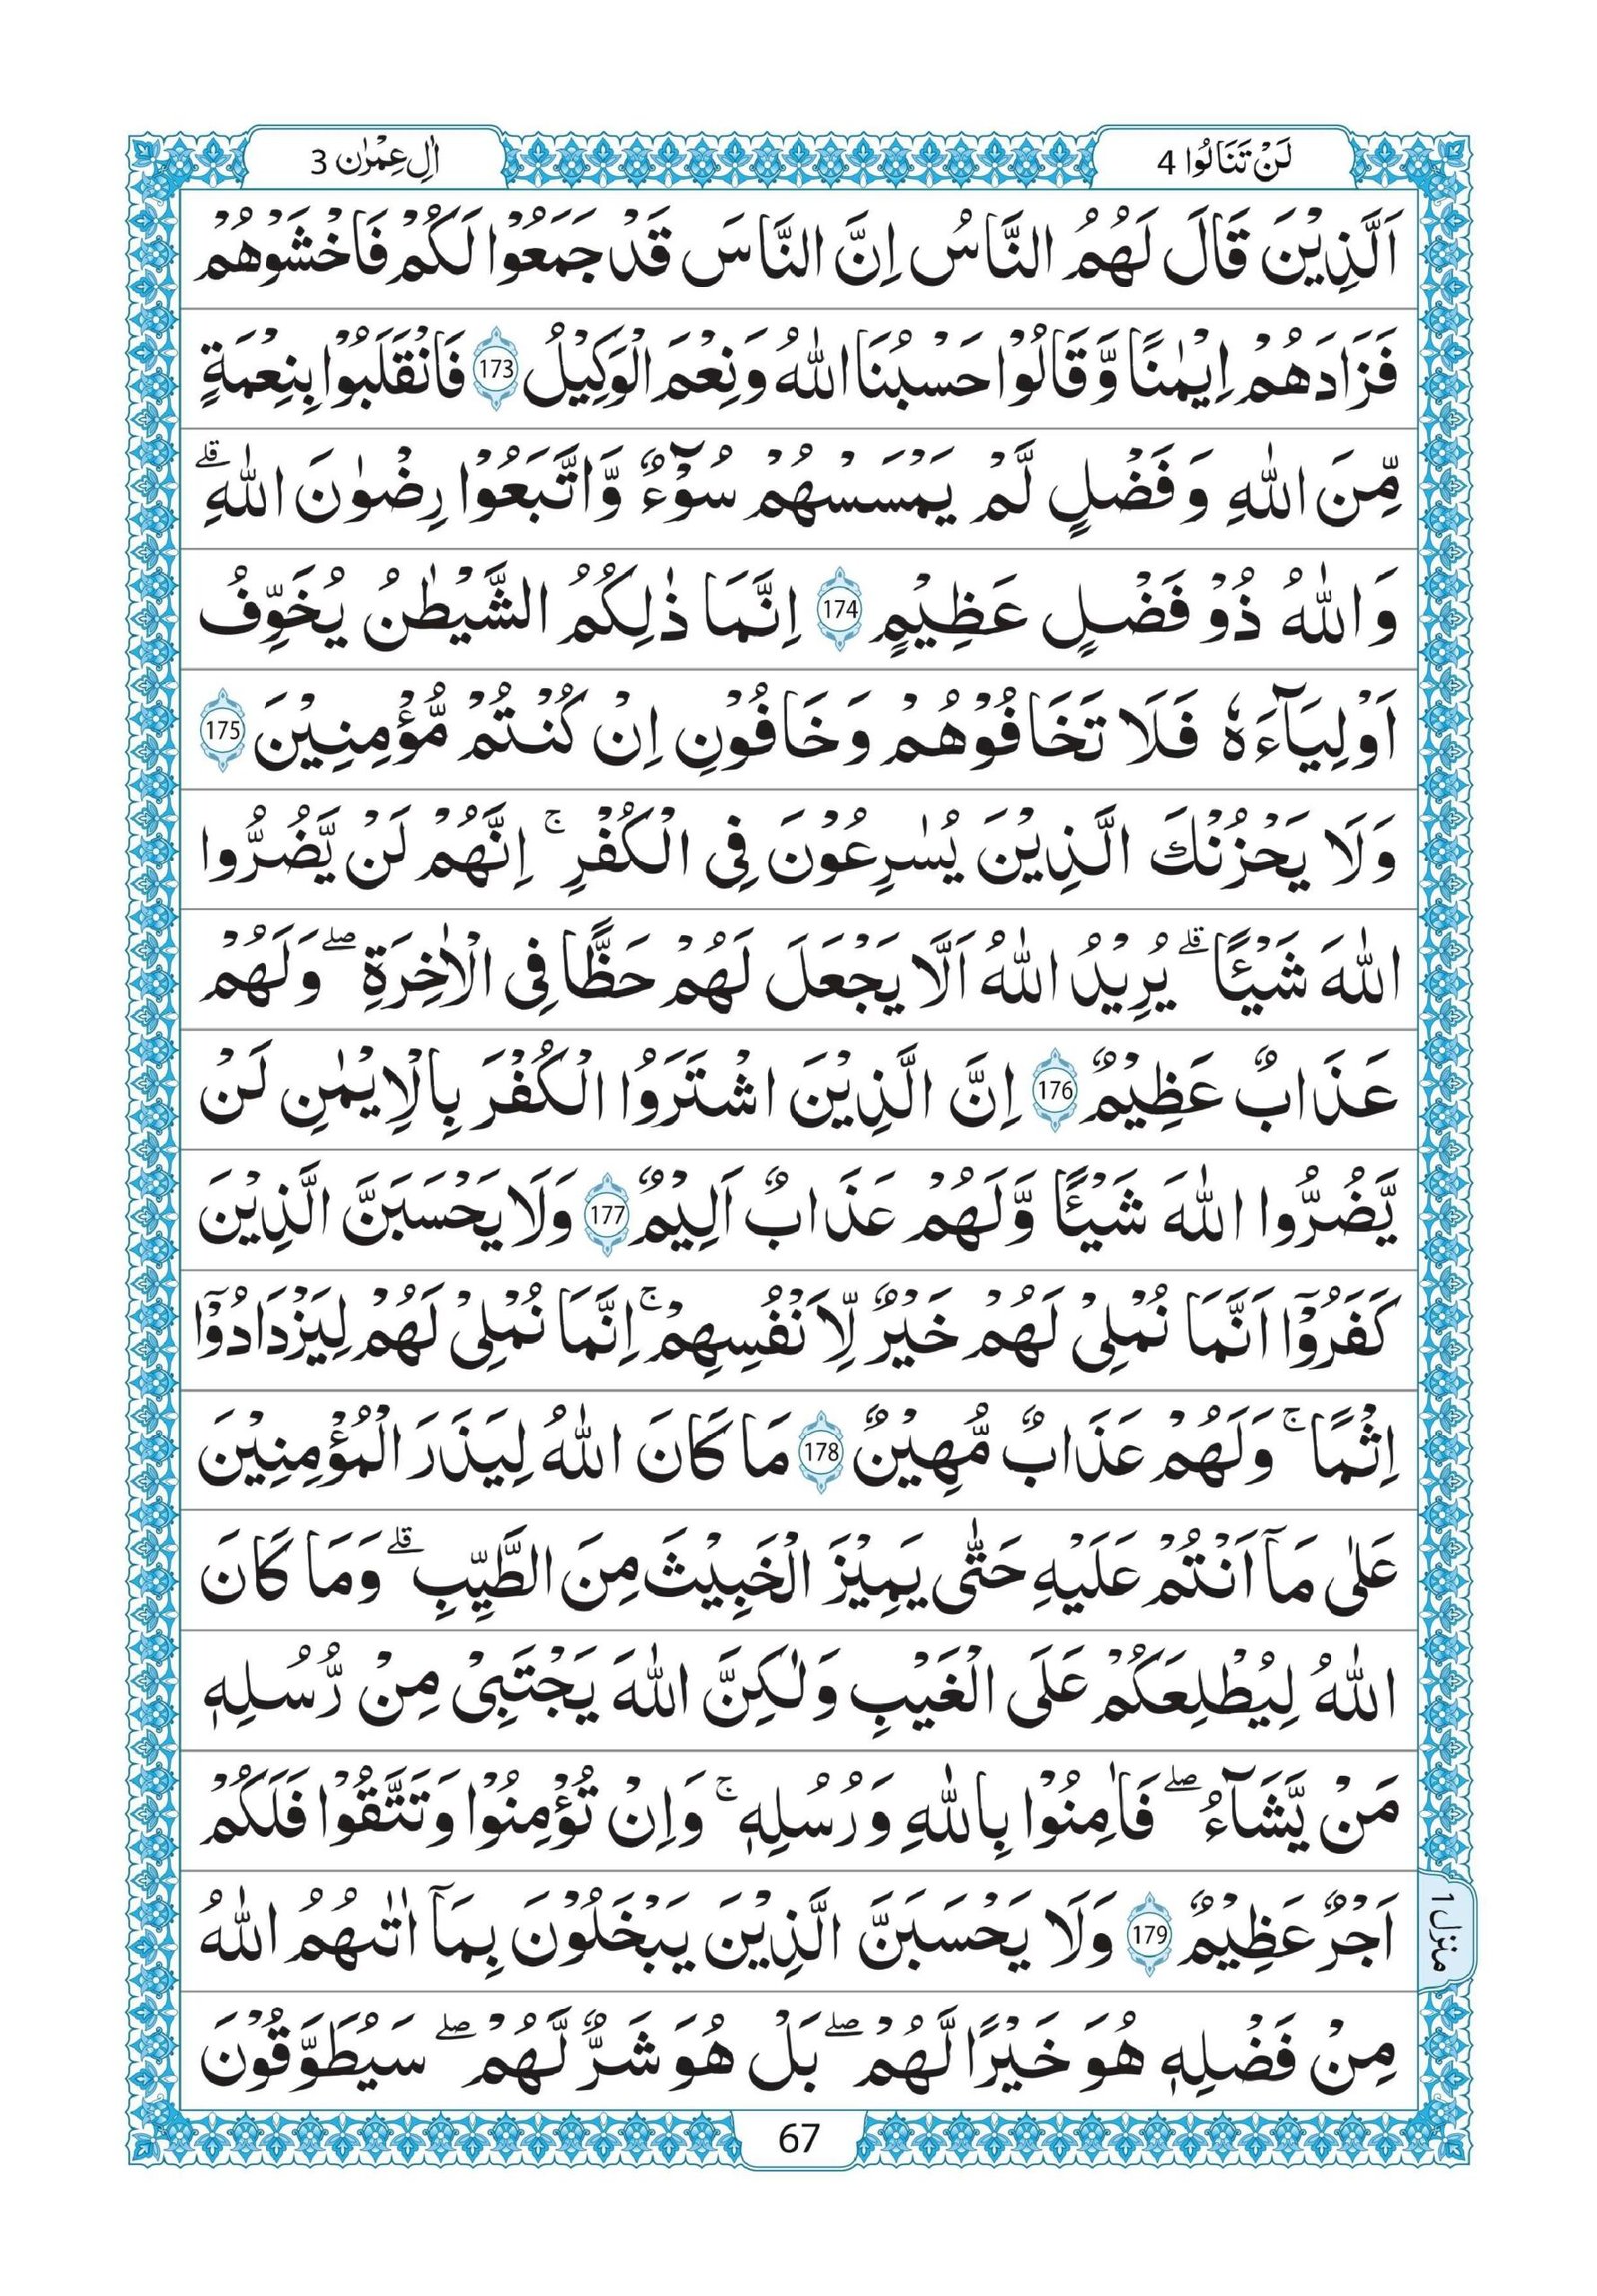 لَنْ تَنَالُوا 4
اٰلِ عِمْرٰن 3
اَلَّذِيْنَ قَالَ لَهُمُ النَّاسُ اِنَّ النَّاسَ قَدْ جَمَعُوْا لَكُمْ فَاخْشَوْهُمْ
فَزَادَهُمْ اِيْمٰنًا وَّقَالُوْا حَسْبُنَا اللّٰهُ وَنِعْمَ الْوَكِيْلُ 173 فَانْقَلَبُوْا بِنِعْمَةٍ
مِّنَ اللّٰهِ وَفَضْلٍ لَّمْ يَمْسَسْهُمْ سُوْٓءٌ وَّاتَّبَعُوْا رِضْوٰنَ اللّٰهِ ۗ
وَاللّٰهُ ذُوْ فَضْلٍ عَظِيْمٍ 174 اِنَّمَا ذٰلِكُمُ الشَّيْطٰنُ يُخَوِّفُ
اَوْلِيَآءَهٗ فَلَا تَخَافُوْهُمْ وَخَافُوْنِ اِنْ كُنْتُمْ مُّؤْمِنِيْنَ 175
وَلَا يَحْزُنْكَ الَّذِيْنَ يُسٰرِعُوْنَ فِى الْكُفْرِ ۚ اِنَّهُمْ لَنْ يَّضُرُّوا
اللّٰهَ شَيْـًٔا ۗ يُرِيْدُ اللّٰهُ اَلَّا يَجْعَلَ لَهُمْ حَظًّا فِى الْاٰخِرَةِ ۖ وَلَهُمْ
عَذَابٌ عَظِيْمٌ 176 اِنَّ الَّذِيْنَ اشْتَرَوُا الْكُفْرَ بِالْاِيْمٰنِ لَنْ
يَّضُرُّوا اللّٰهَ شَيْـًٔا وَّلَهُمْ عَذَابٌ اَلِيْمٌ 177 وَلَا يَحْسَبَنَّ الَّذِيْنَ
كَفَرُوْٓا اَنَّمَا نُمْلِىْ لَهُمْ خَيْرٌ لِّاَنْفُسِهِمْ ۚ اِنَّمَا نُمْلِىْ لَهُمْ لِيَزْدَادُوْٓا
اِثْمًا ۚ وَلَهُمْ عَذَابٌ مُّهِيْنٌ 178 مَا كَانَ اللّٰهُ لِيَذَرَ الْمُؤْمِنِيْنَ
عَلٰى مَآ اَنْتُمْ عَلَيْهِ حَتّٰى يَمِيْزَ الْخَبِيْثَ مِنَ الطَّيِّبِ ۗ وَمَا كَانَ
اللّٰهُ لِيُطْلِعَكُمْ عَلَى الْغَيْبِ وَلٰكِنَّ اللّٰهَ يَجْتَبِىْ مِنْ رُّسُلِهٖ
مَنْ يَّشَآءُ ۖ فَاٰمِنُوْا بِاللّٰهِ وَرُسُلِهٖ ۚ وَاِنْ تُؤْمِنُوْا وَتَتَّقُوْا فَلَكُمْ
اَجْرٌ عَظِيْمٌ 179 وَلَا يَحْسَبَنَّ الَّذِيْنَ يَبْخَلُوْنَ بِمَآ اٰتٰىهُمُ اللّٰهُ
مِنْ فَضْلِهٖ هُوَ خَيْرًا لَّهُمْ ۖ بَلْ هُوَ شَرٌّ لَّهُمْ ۖ سَيُطَوَّقُوْنَ
منزل 1
67